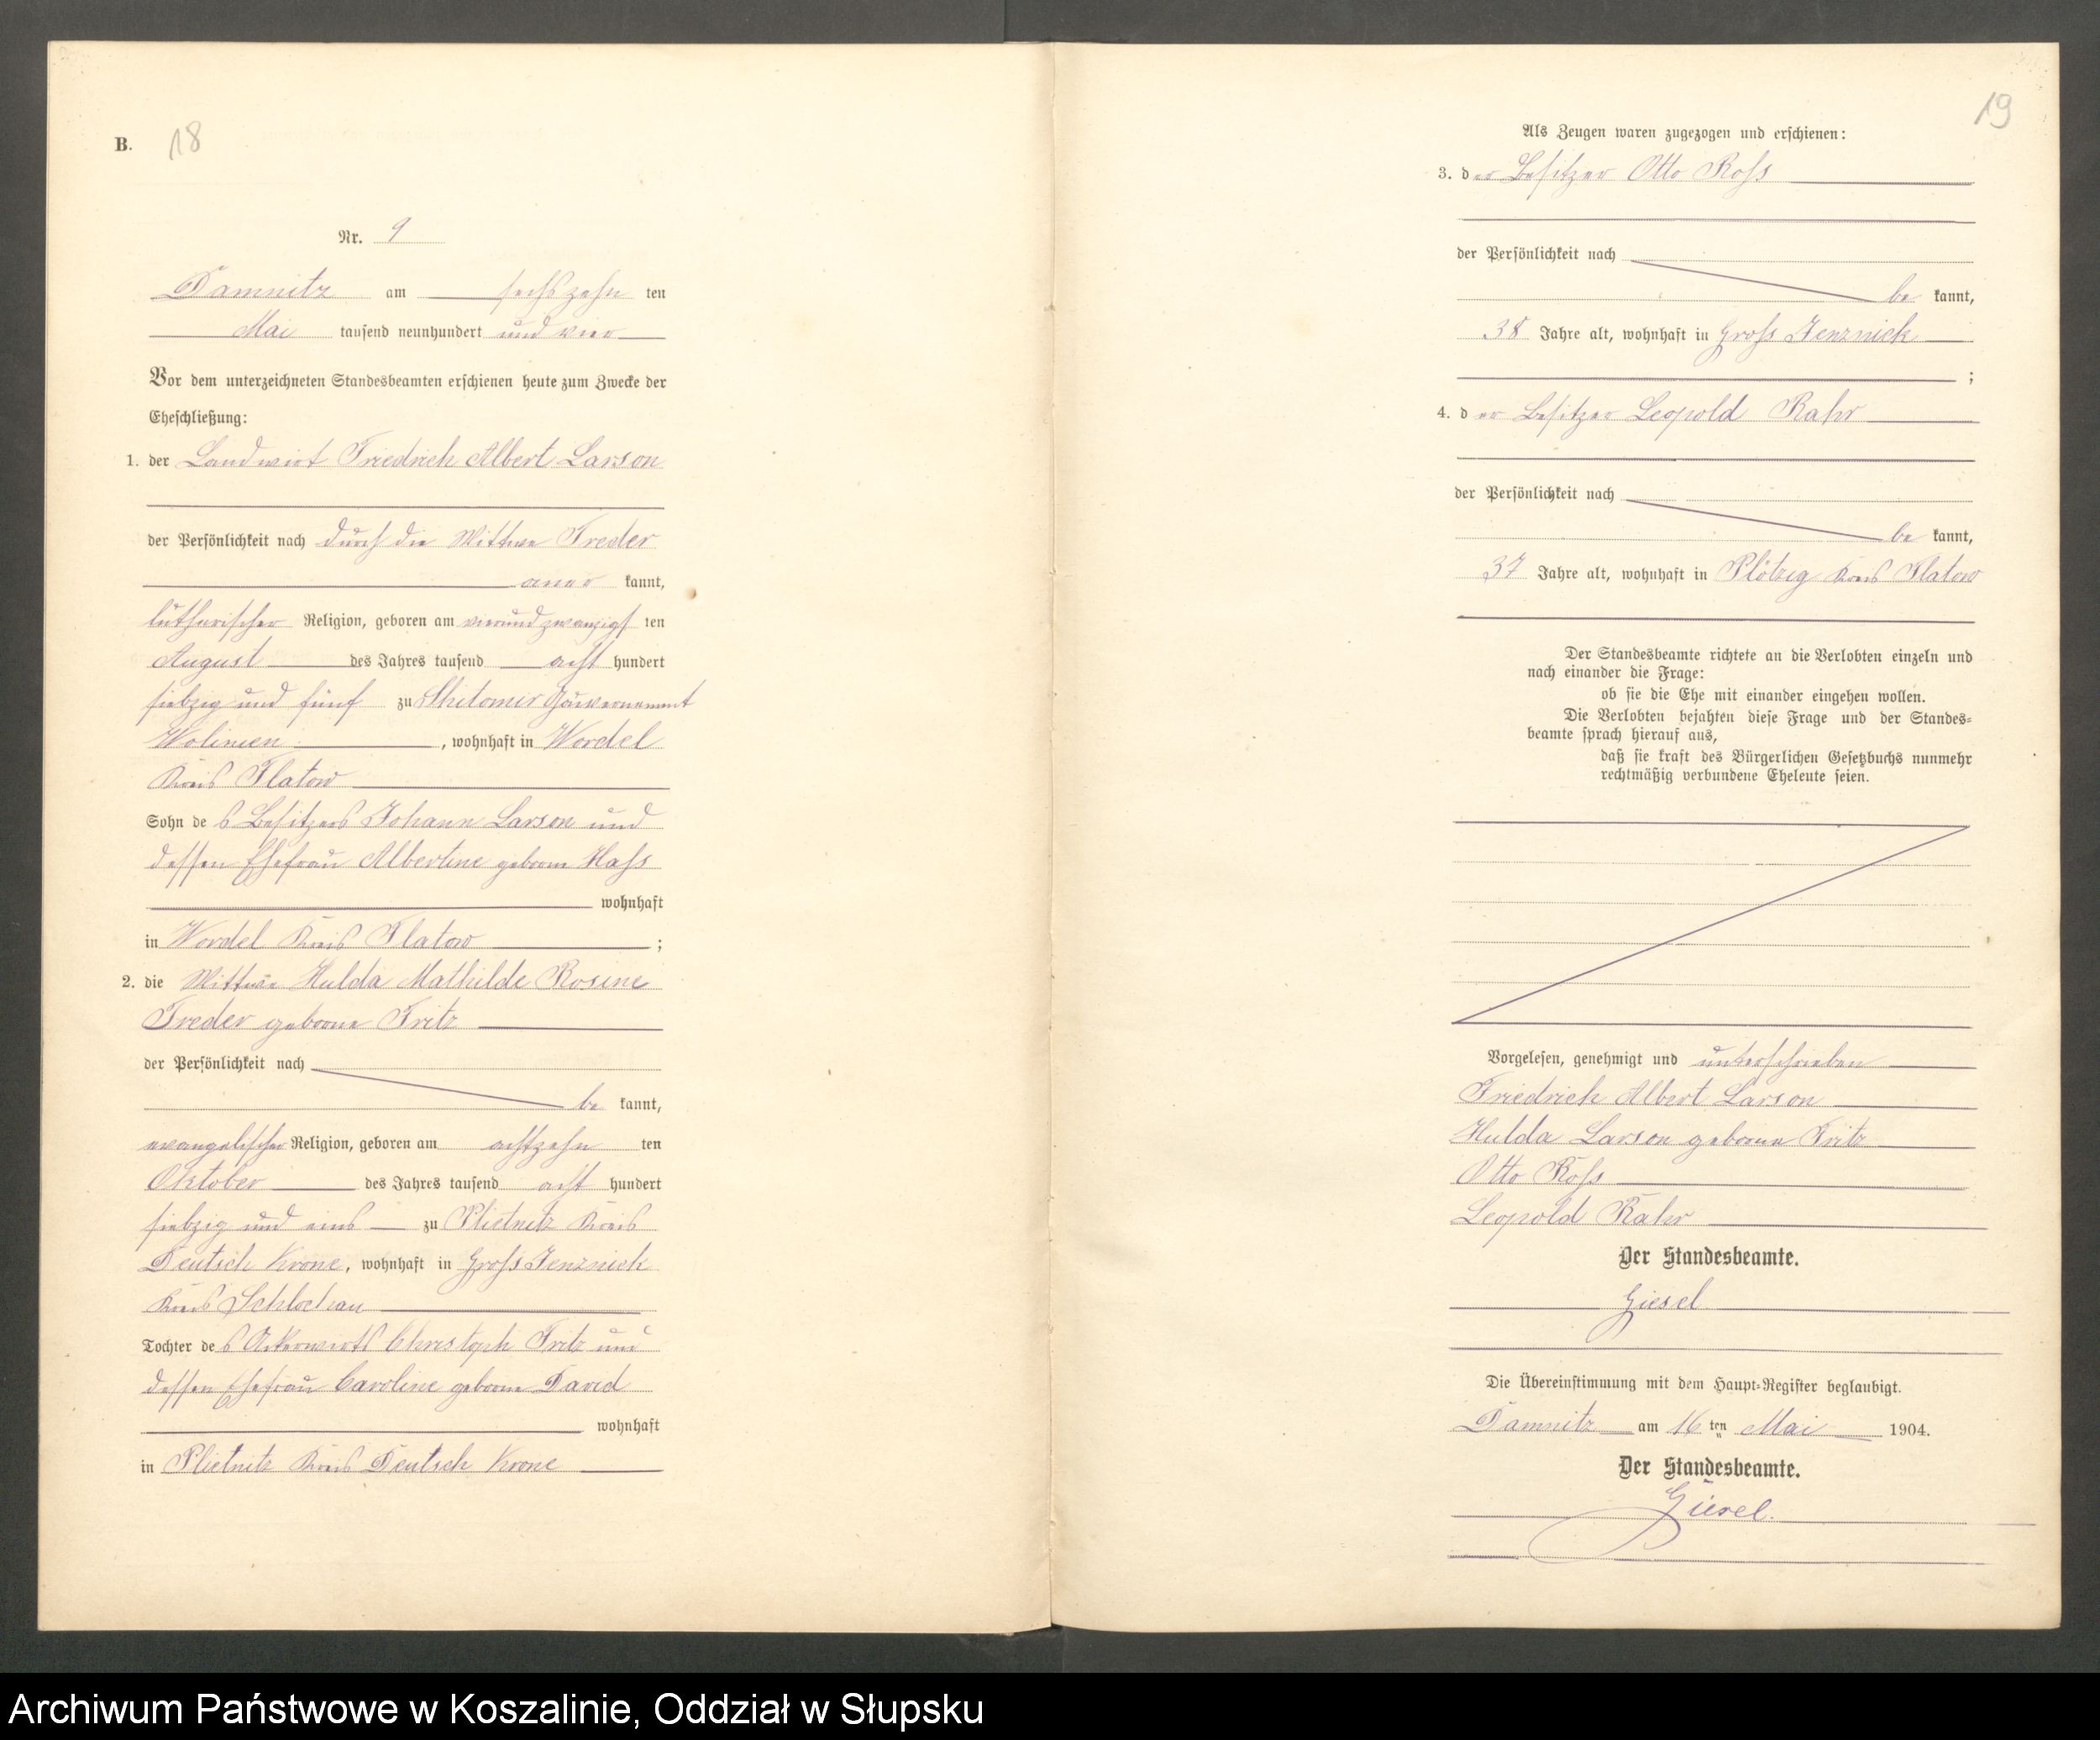 B.
18
Nr. 9
Damnitz am sechszehn ten
Mai tausend neunhundert und vier
Vor dem unterzeichneten Standesbeamten erschienen heute zum Zwecke der
Eheschließung:
1. der Landwirt Friedrich Albert Larson
der Persönlichkeit nach durch die Wittwe Treder
aner kannt,
lutherischer Religion, geboren am vierundzwanzigs ten
August des Jahres tausend acht hundert
siebzig und fünf zu Shitomir Gouvernement
Wolinien, wohnhaft in Wordel
Kreis Flatow
Sohn des Besitzers Johann Larson und
dessen Ehefrau Albertine geborne Hass
wohnhaft
in Wordel Kreis Flatow ;
2. die Wittwe Hulda Mathilde Rosine
Treder geborne Fritz
der Persönlichkeit nach
be kannt,
evangelischer Religion, geboren am achtzehn ten
Oktober des Jahres tausend acht hundert
siebzig und eins zu Plietnitz Kreis
Deutsch Krone, wohnhaft in Gross Jenznick
Kreis Schlochau
Tochter des Ackerwirts Christoph Fritz und
dessen Ehefrau Caroline geborne David
wohnhaft
in Plietnitz Kreis Deutsch Krone
19
Als Zeugen waren zugezogen und erschienen:
3. der Besitzer Otto Ross
der Persönlichkeit nach
be kannt,
38 Jahre alt, wohnhaft in Gross Jenznick
;
4. der Besitzer Leopold Rahr
der Persönlichkeit nach
be kannt,
37 Jahre alt, wohnhaft in Plötzig Kreis Flatow
Der Standesbeamte richtete an die Verlobten einzeln und
nach einander die Frage:
ob sie die Ehe mit einander eingehen wollen.
Die Verlobten bejahten diese Frage und der Standes-
beamte sprach hierauf aus,
daß sie kraft des Bürgerlichen Gesetzbuchs nunmehr
rechtmäßig verbundene Eheleute seien.
Vorgelesen, genehmigt und unterschrieben
Friedrich Albert Larson
Hulda Larson geborne Fritz
Otto Ross
Leopold Rahr
Der Standesbeamte.
Giesel
Die Übereinstimmung mit dem Haupt-Register beglaubigt.
Damnitz am 16ten Mai 1904.
Der Standesbeamte.
Giesel.
Archiwum Państwowe w Koszalinie, Oddział w Słupsku